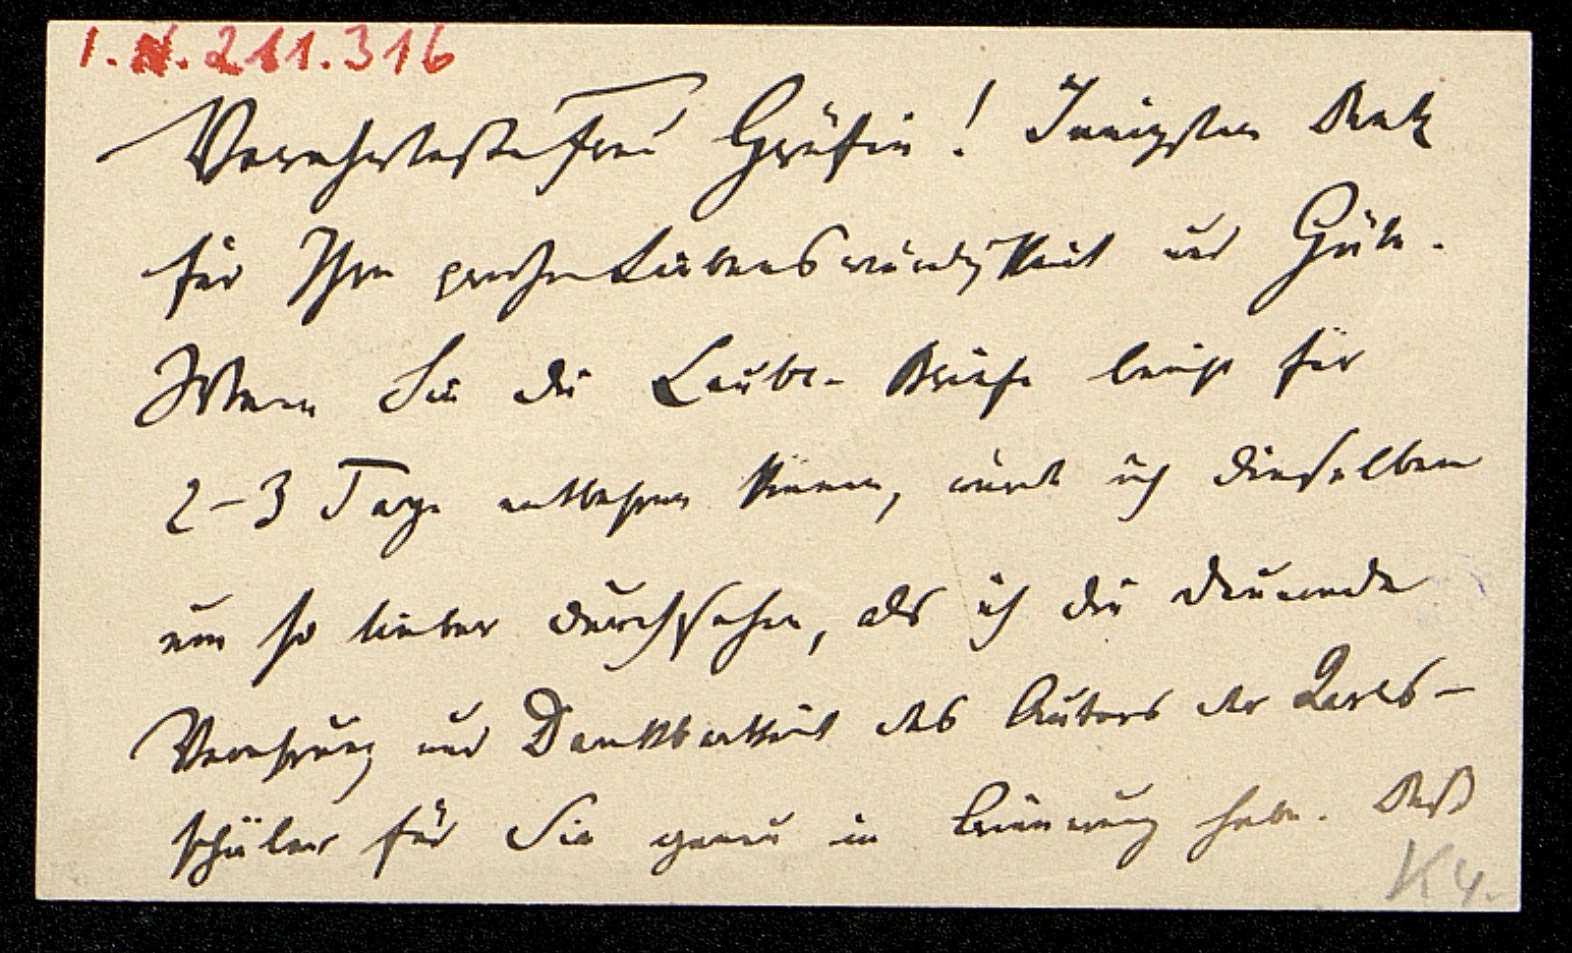 I.N. 211.316
Verehrteste Frau Gräfin! Innigsten Dank
für Ihre große Liebenswürdigkeit und Güte.
Wenn Sie die Laube-Briefe leicht für
2-3 Tage entbehren können, würde ich dieselben
um so lieber durchsehen, als ich die dauernde
Verehrung und Dankbarkeit des Autors der Karls-
schüler für Sie genau in Erinnerung habe. Daß
K 4.